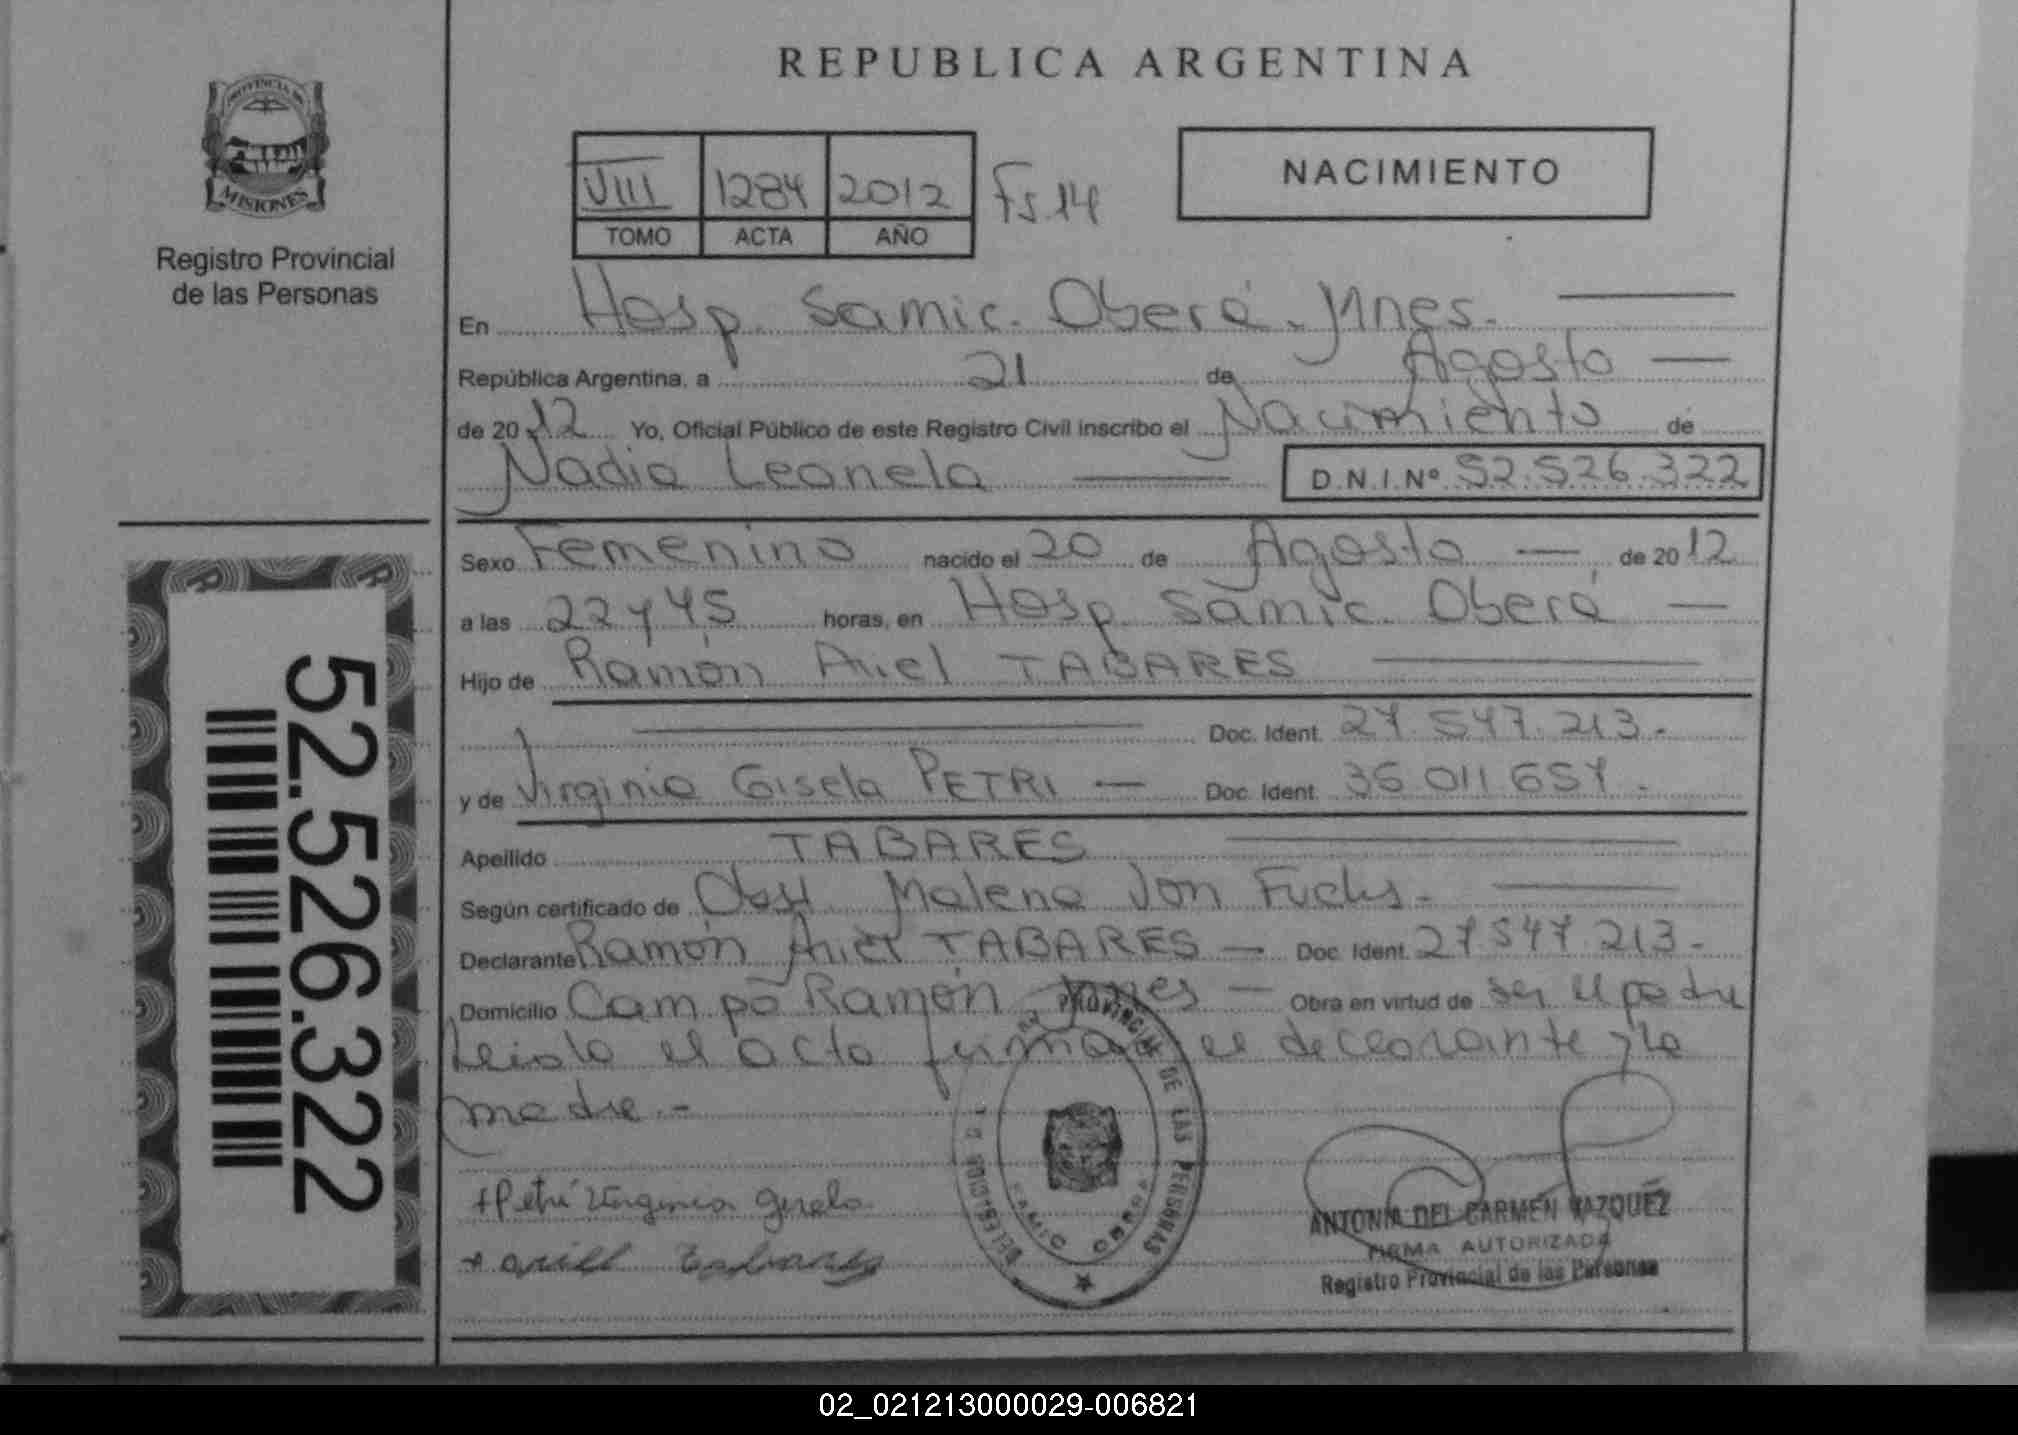 REPUBLICA ARGENTINA
PROVINCIA DE
MISIONES
Registro Provincial
de las Personas
VIII 1284 2012 Fs 14
TOMO ACTA AÑO
NACIMIENTO
En Hosp. Samic. Oberá. Mnes.
República Argentina, a 21 de Agosto
de 2012 Yo, Oficial Público de este Registro Civil inscribo el Nacimiento de
Nadia Leonela D.N.I.Nº 52.526.322
Sexo Femenino nacido el 20 de Agosto de 2012
a las 22 y 45 horas, en Hosp. Samic. Oberá
Hijo de Ramón Ariel TABARES
Doc. Ident. 27.547.213.-
y de Virginia Gisela PETRI Doc. Ident. 36.011.657.
Apellido TABARES
Según certificado de Obst Malena Von Fuchs.
Declarante Ramón Ariel TABARES Doc. Ident. 27547.213-
Domicilio Campo Ramón Mnes Obra en virtud de ser el padre
Leida el acta firma el declarante y la
madre.-
52.526.322
PROVINCIAL DE LAS PERSONAS
SAMIC OBERA
Petri Virginia Gisela
Ariel Tabares
ANTONIA DEL CARMEN VAZQUEZ
FIRMA AUTORIZADA
Registro Provincial de las Personas
02_021213000029-006821